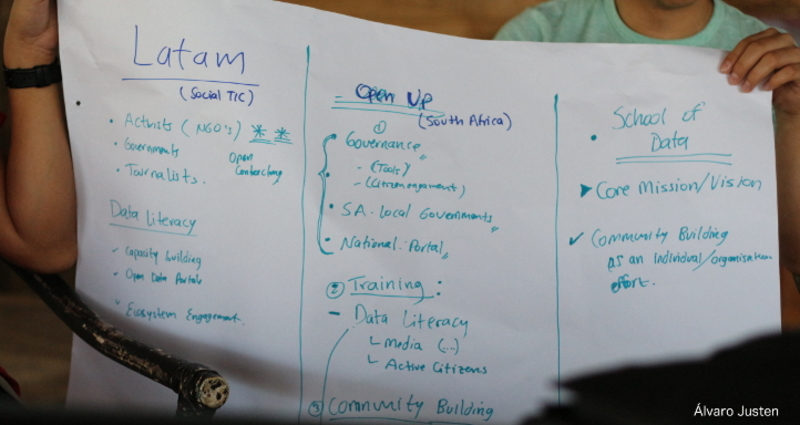 Latam
(Social TIC)
• Activists (NGO's) ** 
• Governments
• Journalists.
Open
Contracting
Data Literacy
✓ Capacity Building
Open Data Portals
Ecosystem Engagement.
- Open Up
(South Africa)
①
Governance
- (Tools)
- (Citizen engagement)
• SA. Local Governments
• National Portal
② Training:
- Data Literacy
Media (...)
Active Citizens
③ Community Building
• School of
Data
➤ Core Mission/Vision
✓ Community Building
as an individual/organisation
effort.
Álvaro Justen